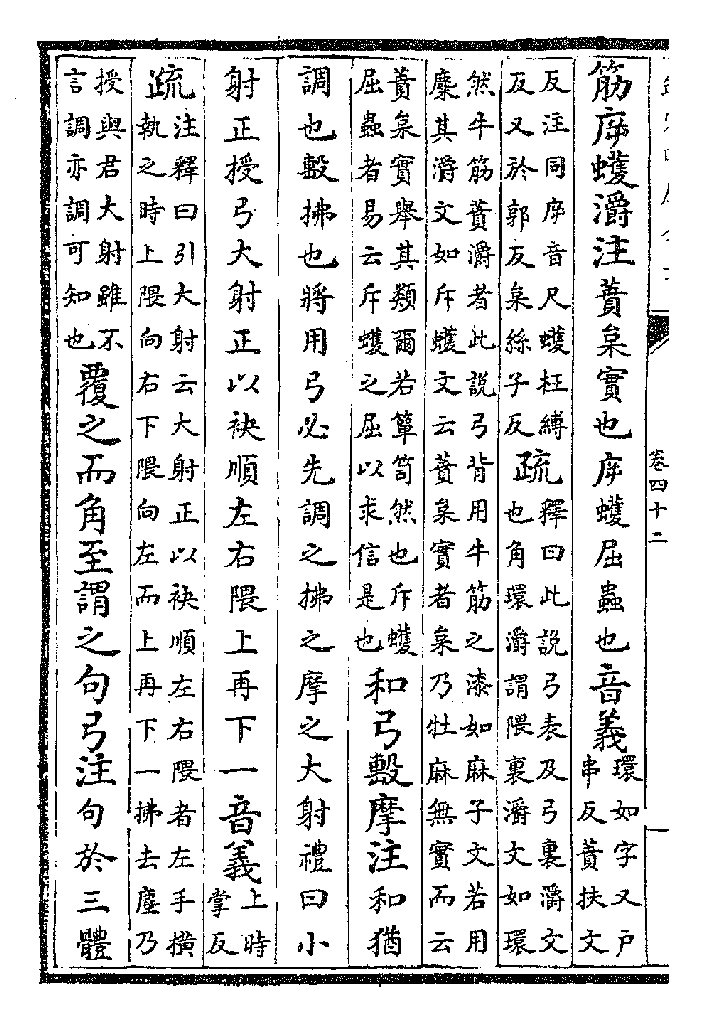 卷四十二
筋斥蠖灂注蕡枲實也斥蠖屈蟲也音義
環如字又戶
串反蕡扶文
反注同斥音尺蠖枉縛
反又於郭反枲絲子反
疏
釋曰此說弓表及弓裏灂文
也角環灂謂隈裏灂文如環
然牛筋蕡灂者此說弓背用牛筋之漆如麻子文若用
麋其灂文如斥蠖文云蕡枲實者枲乃牡麻無實而云
蕡枲實舉其類爾若簞笥然也斥蠖
屈蟲者易云斥蠖之屈以求信是也
和弓毄摩注和猶
調也毄拂也將用弓必先調之拂之摩之大射禮曰小
射正授弓大射正以袂順左右隈上再下一音義
上時
掌反
疏
注釋曰引大射云大射正以袂順左右隈者左手橫
執之時上隈向右下隈向左而上再下一拂去塵乃
授與君大射雖不
言調亦調可知也
覆之而角至謂之句弓注句於三體